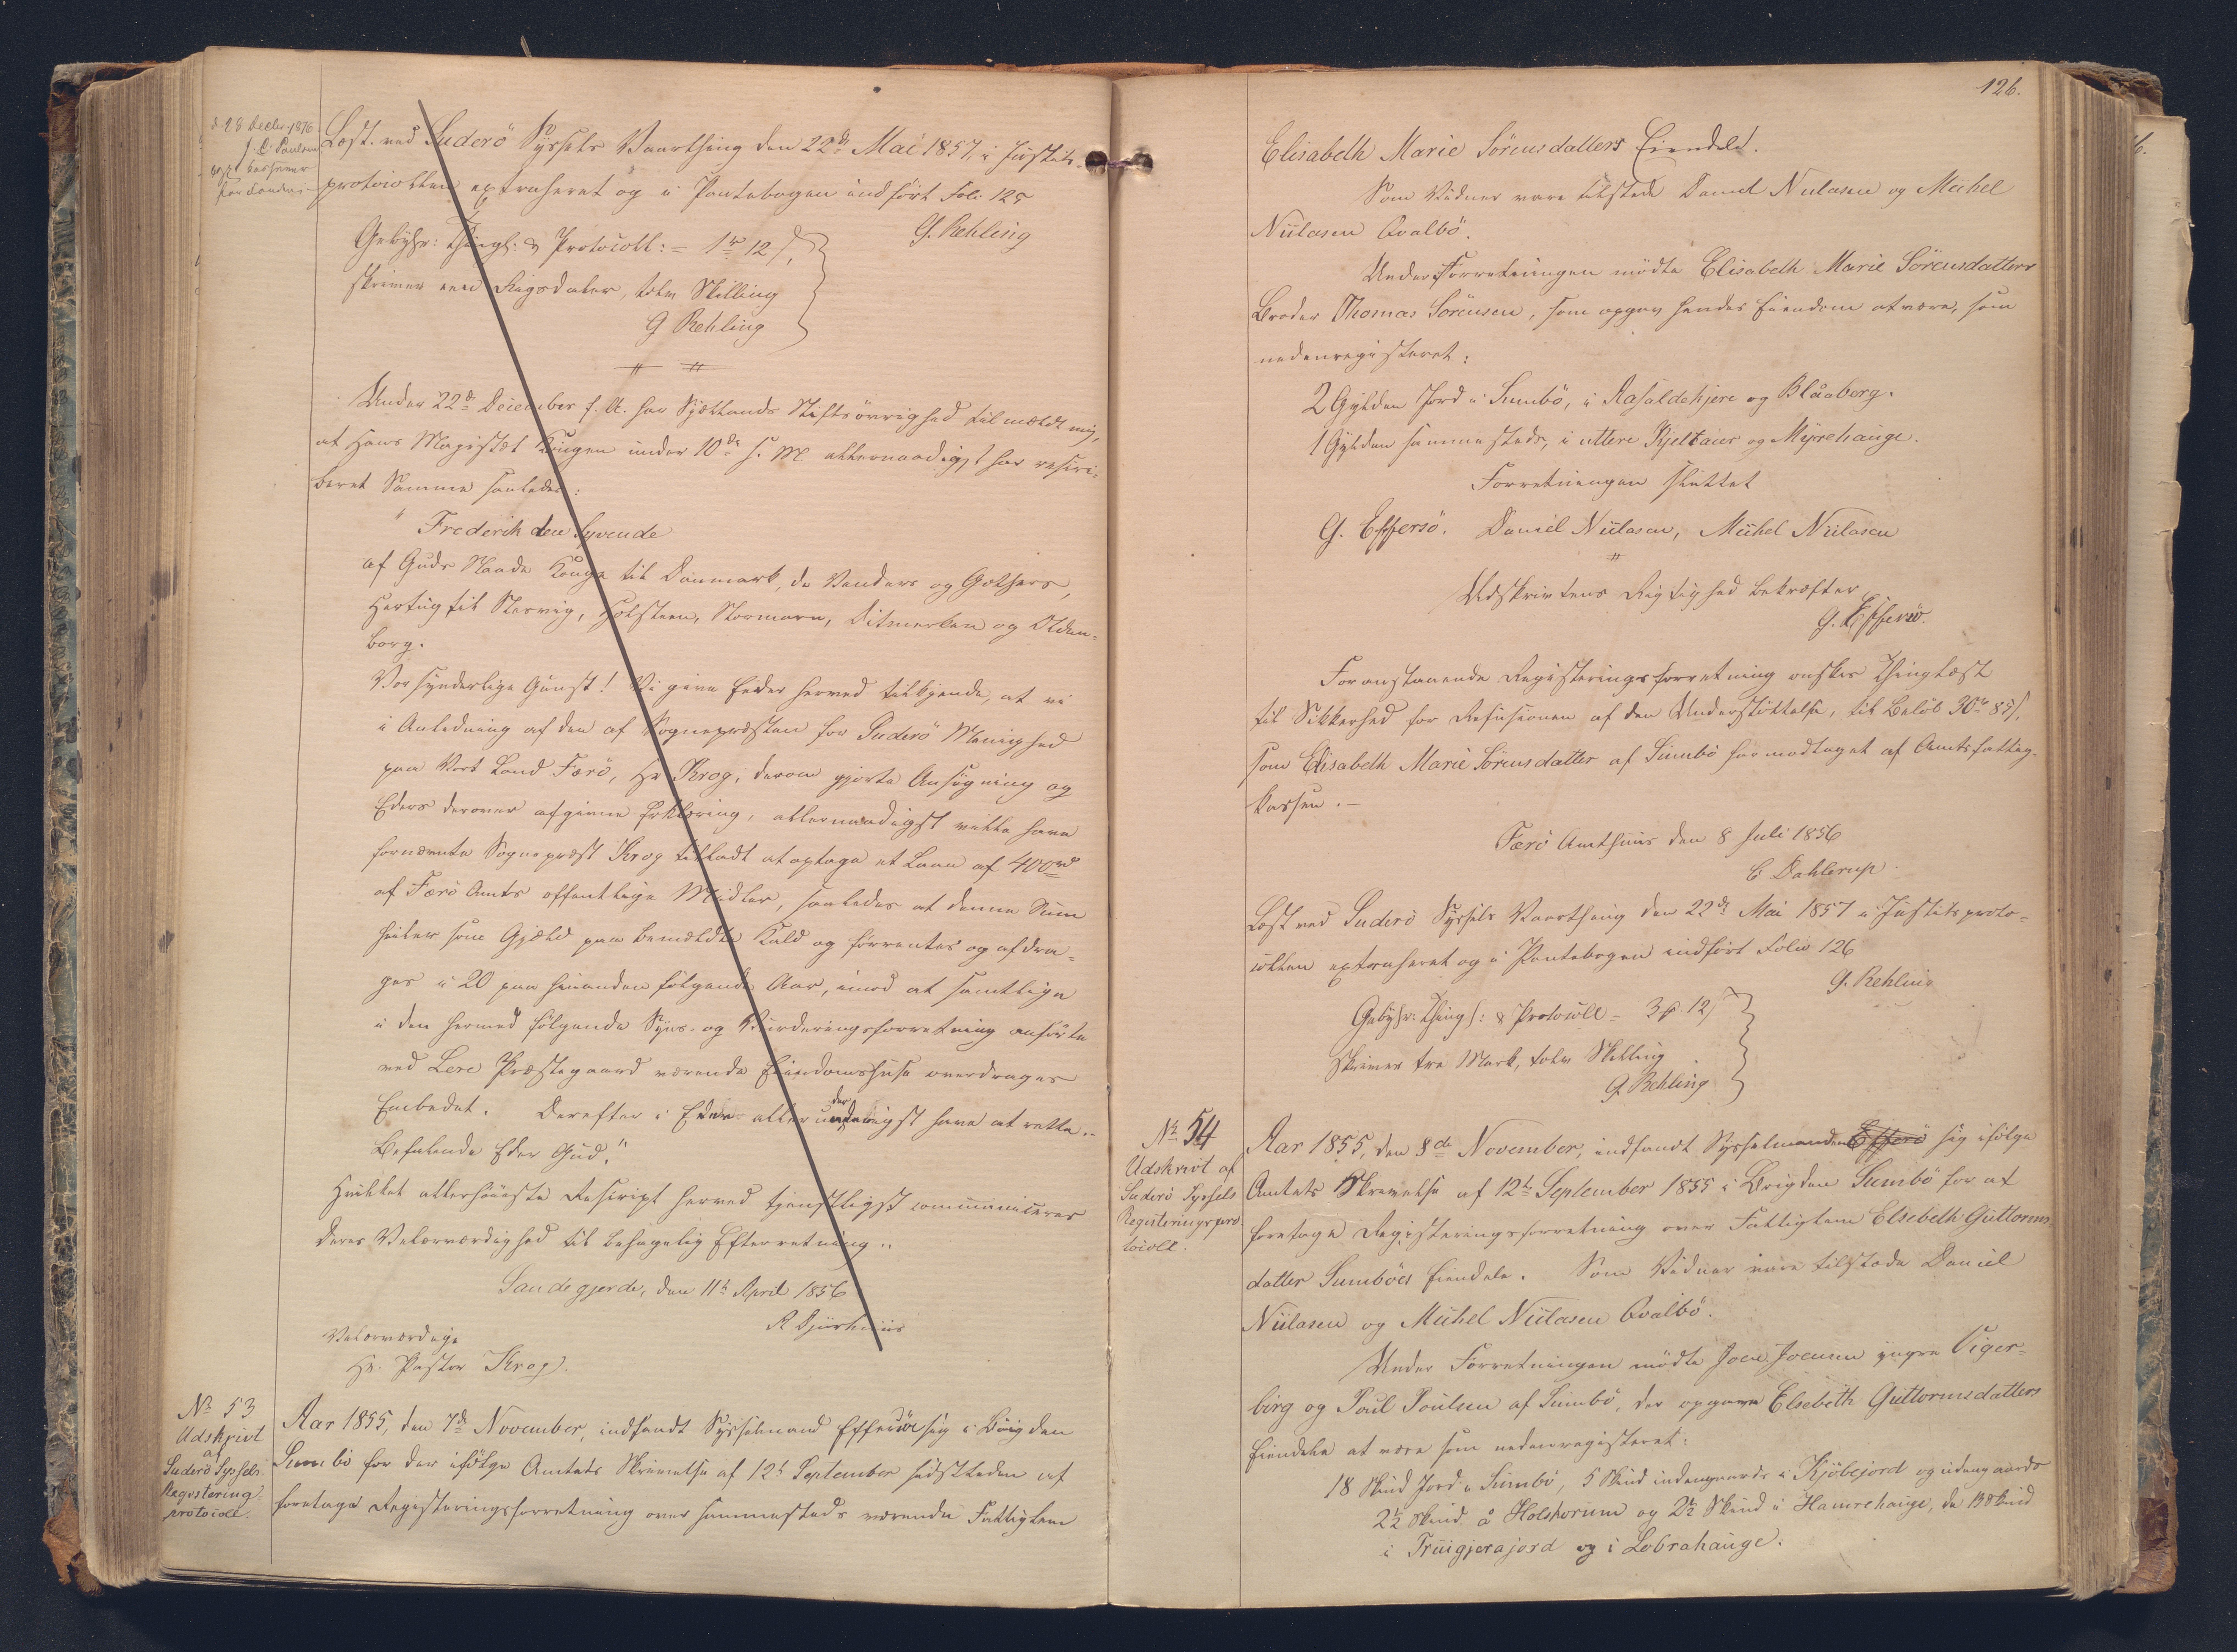 d. 28 Decbr. 1876
J. C. Poulsen
Læst. ved Suderö Syssels Vaarthing den 22de Mai 1857, i Justits-
protocollen extraheret og i Pantebogen indfört Fol. 125
G. Rehling
Gebyhr: Thingl: & Protocoll: = 1rd 12 s,
skriver een Rigsdaler, tolv Skilling
G Rehling
Under 22de December f. A. har Sjællands Stiftsövrighed tilmeldt mig,
at Hans Majestæt Kongen under 10de s. M. allernaadigst har rescri-
beret Samme saaledes:
"Frederik den Syvende
af Guds Naade Konge til Danmark, de Venders og Gothers,
Hertug til Slesvig, Holsteen, Stormarn, Ditmersken og Olden-
borg.
Vor synderlige Gunst! Vi give Eder herved tilkjende, at vi
i Anledning af den af Sognepræsten for Suderö Menighed
paa Vort Land Færö, Hr Krog, derom gjorte Ansögning og
Eders derover afgivne Erklæring, allernaadigst ville have
fornævnte Sognepræst Krog tilladt at optage et Laan af 400rd
af Færö Amts offentlige Midler, saaledes at denne Sum
hviler som Gjæld paa bemeldte Kald og forrentes og afdra-
ges i 20 paa hinanden fölgende Aar, imod at samtlige
i den hermed fölgende Syns- og Vurderingsforretning anförte
ved Lere Præstegaard værende Eiendomshuse overdrages
Embedet. Derefter i Eder allerunderdanigst have at rette..
Befalende Eder Gud."
Hvilket allerhöieste Rescript herved tjenstligst communiceres
Deres Velærværdighed til behagelig Efterretning..
Sandegjerde, den 11te April 1856
R Djurhuus
Velærværdige
Hr. Pastor Krog.
No 53
Udskrivt
af
Suderö Syssels
Registerings-
protocoll.
Aar 1855, den 7de November, indfandt Sysselmand Effersöe sig i Böigden
Sumbö for der ifölge Amtets Skrivelse af 12te September sidstleden at
foretage Registeringsforretning over sammesteds værende Fattiglem
126.
Elisabeth Marie Sörensdatters Eiendele.
Som Vidner vare tilstede Daniel Niclasen og Michel
Niclasen Qvalbö.
Under Forretningen mödte Elisabeth Marie Sörensdatters
Broder Thomas Sörensen, som opgav hendes Eiendom at være, som
nedenregisteret:
2 Gylden Jord i Sumbö, i Rasaldehjere og Blåaberg.
1 Gylden samme steds, i uttere Kjeltaier og Myrehauge.
Forretningen sluttet
G. Effersö. Daniel Niclasen, Michel Niclasen
Udskrivtens Rigtighed bekræfter
G. Effersö.
Foranstaaende Registeringsforretning önskes thinglæst
til Sikkerhed for Refusionen af den Understöttelse, til Belöb 30rd 85 s,
som Elisabeth Marie Sörensdatter af Sumbö har modtaget af Amtsfattig-
kassen.-
Færö Amthuus den 8 Juli 1856
C. Dahlerup
Læst ved Suderö Syssels Vaarthing den 22de Mai 1857 i Justitsproto-
collen extraheret og i Pantebogen indfört Folio 126
G. Rehling
Gebyhr: Thingl: & Protocoll = 3 mk. 12 s
skriver tre Mark, tolv Skilling
G. Rehling
No 54
Udskrivt af
Suderö Syssels
Registeringspro-
tocoll.
Aar 1855, den 8de November, indfandt Sysselmanden Effersö sig ifölge
Amtets Skrivelse af 12te September 1855 i Böigden Sumbö for at
foretage Registeringsforretning over Fattiglem Elsebeth Guttorms
datter Sumböes Eiendele. Som Vidner vare tilstede Daniel
Niclasen og Michel Niclasen Qvalbö.
Under Forretningen mödte Joen Joensen yngre Viger-
birg og Poul Poulsen af Sumbö, der opgave Elsebeth Guttormsdatters
Eiendele at være som nedenregisteret:
18 Skind Jord i Sumbö, 5 Skind indengaards i Kjöbejord og udengaards
2½ Skind å Holshorum og 2½ Skind i Hamrehauge, de 13 Skind
i Truigjerajord og i Lobrahauge.